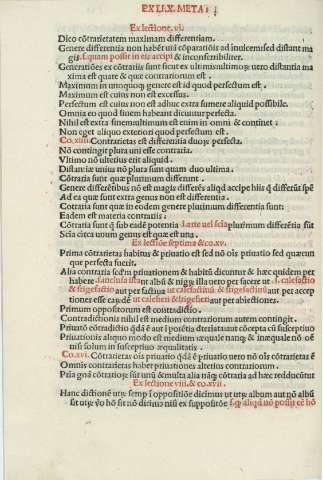 EX LI. X. META:
Ex lectione .vi.
Dico cōtrarietatem maximam differentiam.
Genere differentia non habēt unā cōparationē ad inuicem sed distant magis
gis. Equam possit in eis accipi & inconseribiliter.
Generatiōes ex cōtrariis sunt sicut ex ultimis ultimorum: uero distantia ma
xima est quare & que contrariorum est.
Maximum in unoquoq; genere est id quod perfectum est.
Maximum est cuius non est excessus.
Perfectum est cuius non est adhuc extra sumere aliquid possibile.
Omnia eo quod finem habeant dicuntur perfecta.
Nihil est extra finem: ultimum est enim in omni & continet.
Non eget aliquo exteriori quod perfectum est.
Co.xiiii. Contrarietas est differentia duorum perfecta.
Nō contingit plura uni esse contraria.
Vltimo nō ulterius erit aliquid.
Distantiæ unius nō plura sunt quam duo ultima.
Cōtraria sunt quæ plurimum differunt.
Genere differētibus nō est magis differēs aliqd accipe hiis q̄ differūt spē
Ad ea quæ sunt extra genus non est differentia.
Cōtraria sunt quæ in eodem genere plurimum differentia sunt:
Eadem est materia contrariis
Cōtraria sunt q̄ sub eadē potentia l. arte uel scia plurimum differentia sūt
Scia circa unum genus est quæ est una.
Ex lectiōe septima & co.xv.
Prima cōtrarietas habitus & priuatio est sed nō oīs priuatio sed quæcun
que perfecta fuerit.
Alia contraria secūm priuationem & habitū dicuntur & hæc quidem per
habere aut per
factiua ut calefactiua & frigefactiua aut per accep
tiones esse eārū ut calefieri & frigefieri aut per abiectionea.
Primum oppositorum est contradictio.
Contradictionis nihil est medium contrariorum autem contingit.
Priuatō cōtradictio qdā ē aut ī potētia dterīata aut cōcepta cū susceptiuo
Priuationis aliquo modo est medium æquale nanq; & inæquale nō oē
nisi solum in susceptiuo æqualitatis.
Co.xvi. Cōtrarietas oīs priuatio qdā ē priuatio uero nō oīs cōtrarietas ē
Omnis contrarietas habet priuationes alterius contrariorum.
Pria gnā cōtrariorum: sūt unū & multa alia nāq; cōtraria ad hæc reducūtur
Ex lectione viii. & co.xvii.
Hanc dictionē utrum semp ī oppositiōe dicimus ut utrum album aut nō albū
sit utrum vō hō sit nō dicimus nisi ex suppositōe